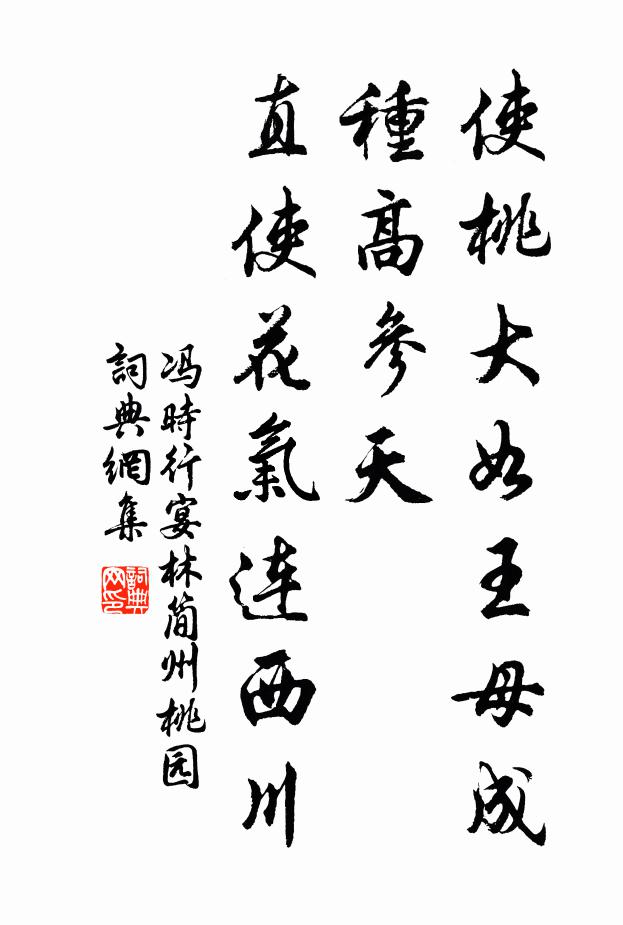 使桃大如王母成
種高參天
直使花氣連西川
冯時行宴林简州桃园
詞典網集
詞典网印